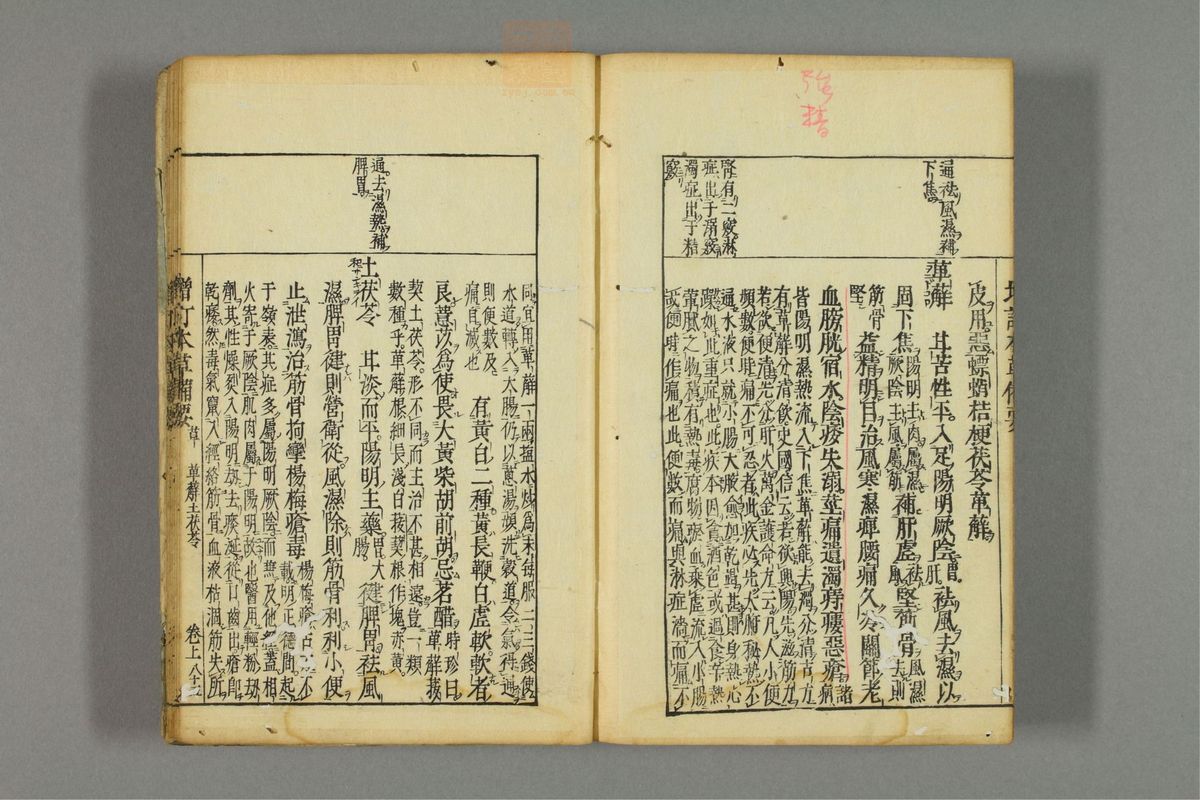 強
精
通祛風濕補
下焦
腎有二竅淋
症出于溺竅
濁症出于精
竅
皮用惡螵蛸桔梗茯苓萆薢
萆薢 甘苦性平入足陽明厥陰胃肝祛風去濕以
固下焦陽明主肉屬濕厥陰主風屬筋補肝虛祛風堅筋骨風濕去則
筋骨堅益精明目治風寒濕痺腰痛久冷關節老
血膀胱宿水陰痿失溺莖痛遺濁痔瘻惡瘡諸病
皆陽明濕熱流入下焦萆薢能去濁分清古方
有萆薢分清飲史國信云若欲興陽先滋筋力
若欲便清先分肝火萬金護命方云凡人小便
頻數便時痛不可忍者此疾必先大腑秘熱不
通水液只就小腸大腑愈加乾竭甚則身熱心
躁如此重症也此疾本因貪酒色或過食辛熱
葷膩之物積有熱毒腐物瘀血乘虛流入小腸
故便時作痛也此便數而痛與淋症澁而痛不
同宜用萆薢一兩搵水炒為末每服二三錢使
水道轉入大腸仍以蔥湯頻洗穀道令氣得通
則便數及痛自減也有黃白二種黃長鞕白虛軟軟者
良薏苡為使畏大黃柴胡前胡忌茗醋時珍曰萆薢菝
契土茯苓形不同而主治不甚相遠豈一類
數種乎萆薢根細長淺白菝契根作塊赤黃
通去濕熱補
脾胃
土茯苓 甘淡而平陽明主藥胃大腸健脾胃祛風
濕脾胃健則營衛從風濕除則筋骨利利小便
止泄瀉治筋骨拘攣楊梅瘡毒楊梅瘡古方不載明正德間起
于嶺表其症多屬陽明厥陰而兼及他經蓋相
火寄于厥陰肌肉屬于陽明故也醫用輕粉劫
劑其性燥烈入陽明劫去痰涎從口齒出瘡即
乾痿然毒氣竄入經絡筋骨血液枯涸筋失所
增訂本草備要 草 萆薢土茯苓 卷上